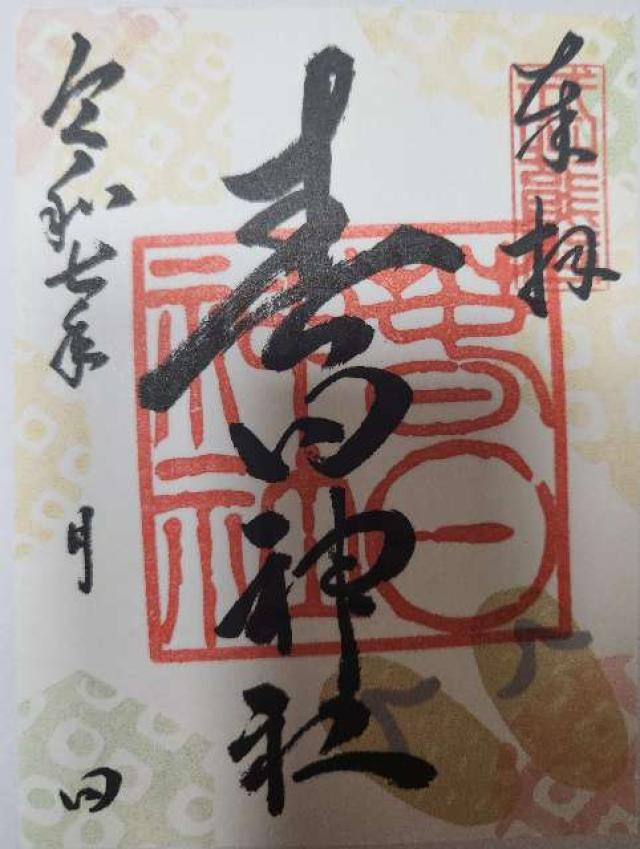 奉拝
春日神社
春日
神社
令和七年 月 日